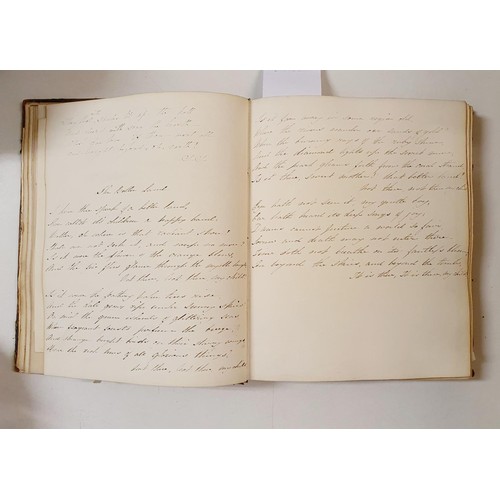 The Better Land
I hear thee speak of a better land,
Thou callest its children a happy band
Mother! oh where is that radiant shore?
Shall we not seek it, and weep no more?
Is it where the flower of the orange blows,
And the fire flies glance through the myrtle boughs
Not there, not there, my child
Is it where the feathery palm trees rise
And the date grows ripe under sunny skies
Or mid the green islands of glittering seas
Where fragrant forests perfume the breeze?
And strange bright birds on their starry wings
Bear the rich hues of all glorious things;
Not there, not there, my child
Is it far away in some region old
Where the rivers wander o'er sands of gold?
Where the burning rays of the ruby shine
And the diamond lights up the secret mine,
And the pearl gleams forth from the coral strand
Is it there, sweet mother! that better land?
Not there, not there, my child
Eye hath not seen it, my gentle boy,
Ear hath heard its deep songs of joy,
Dreams cannot picture a world so fair
Sorrow and death may not enter there
Time doth not breathe on its bloom,
For beyond the clouds, and beyond the tomb,
It is there, it is there, my child